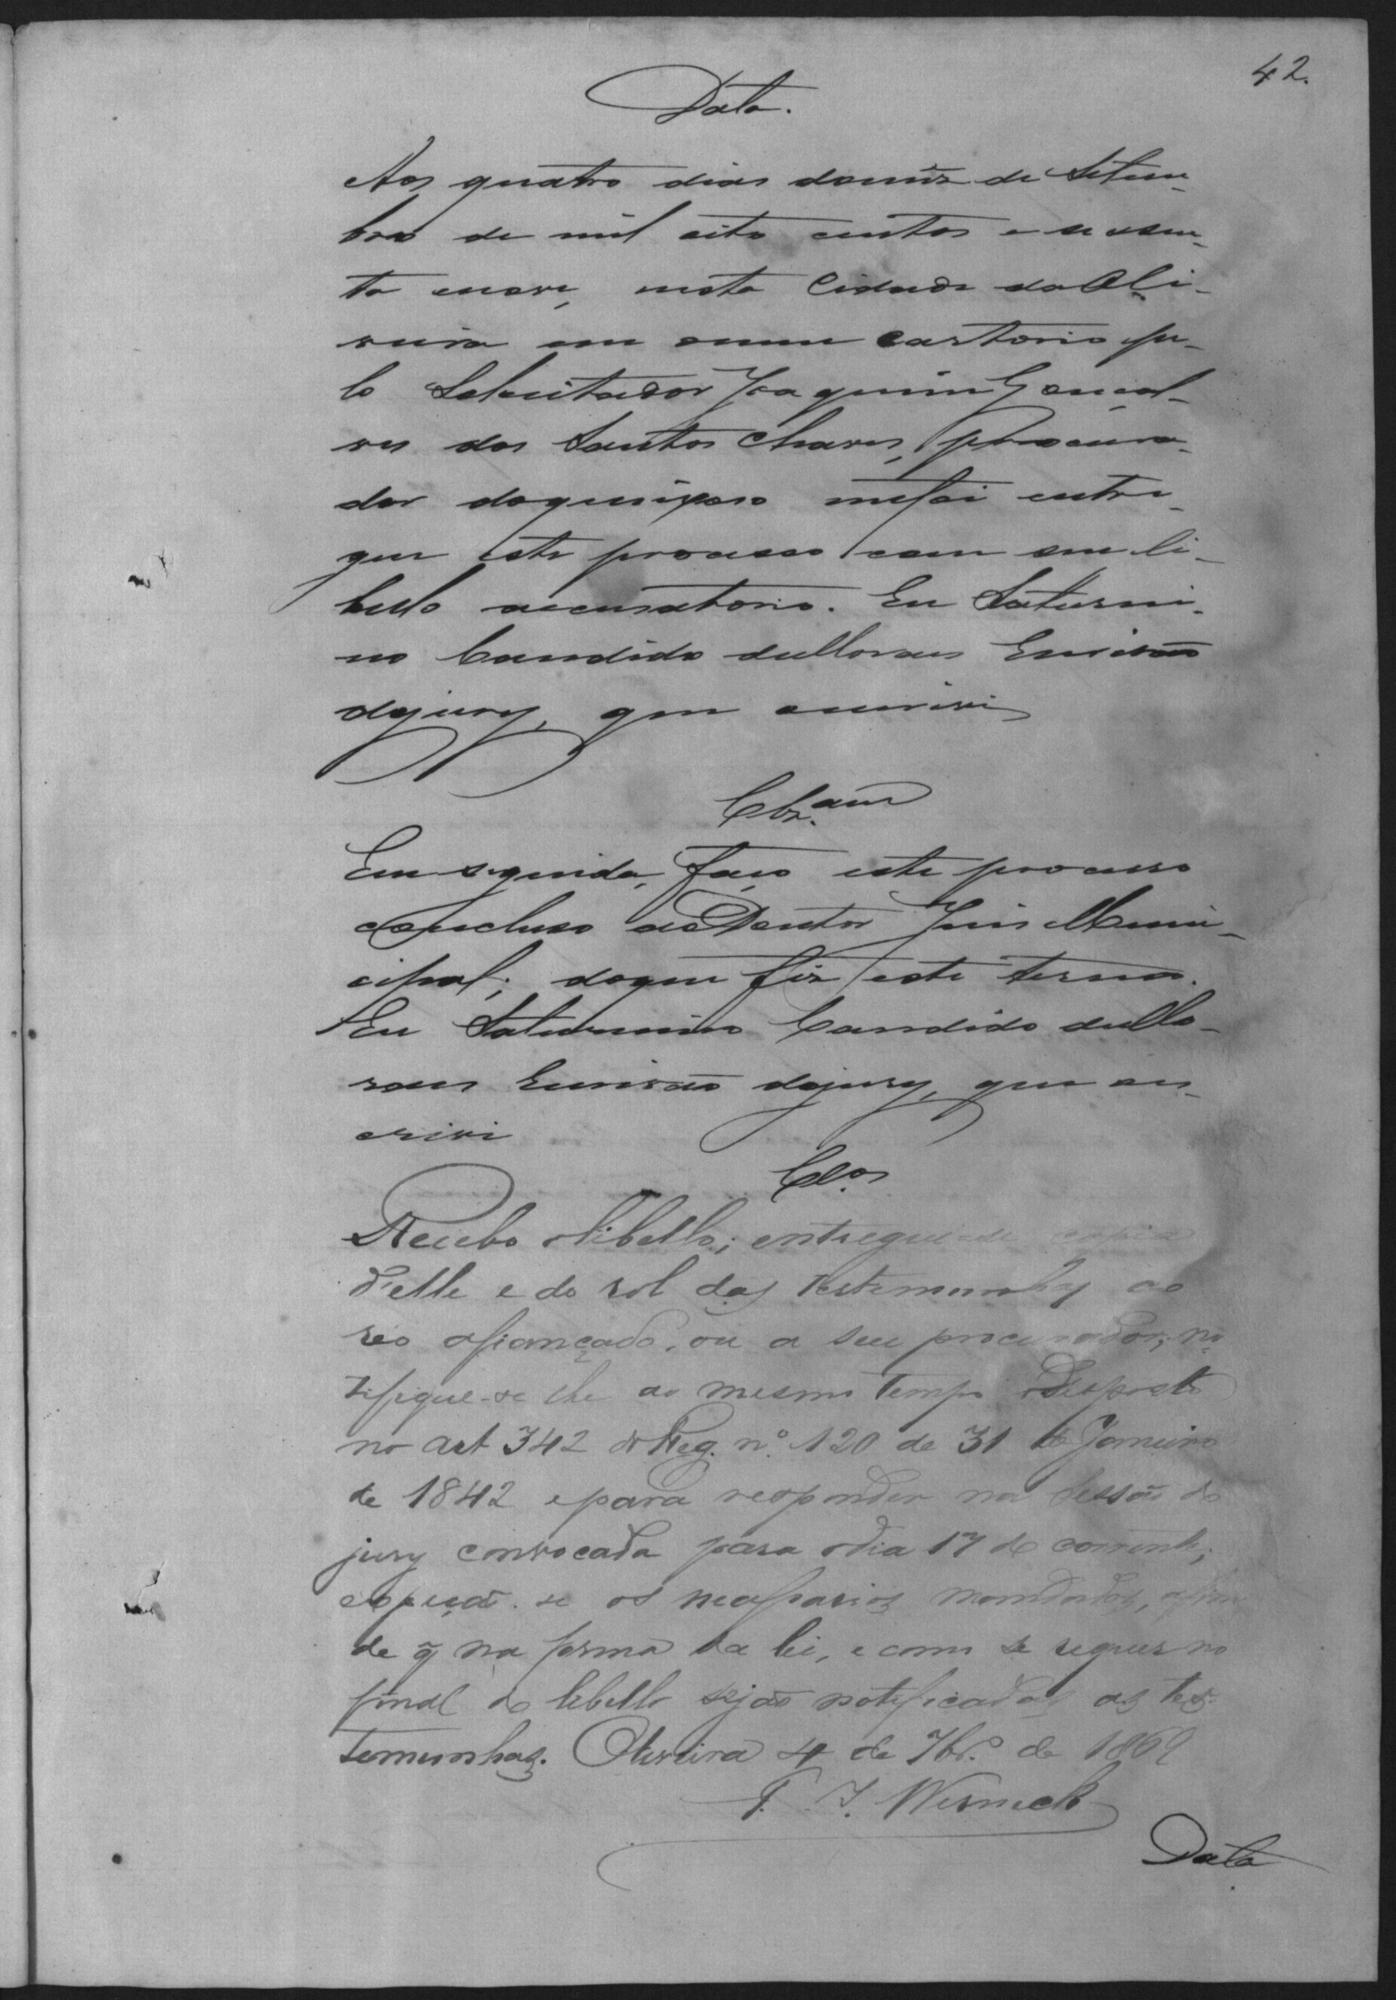 42.
Data.
Aos quatro dias domêz de Setem-
bro de mil oito centos e sessen-
ta enove, nesta Cidade da Oli-
veira em omeu Cartorio pe-
lo Solicitador Joaquim Gonçal-
ves dos Santos Chaves, procura-
dor doqueixoso mefoi entre-
gue este processo com seu li-
bello accusatorio. Eu Saturni-
no Candido deMoraes Escrivão
dojury, que escrevi
Clz.am
Em seguida, faço este processo
concluso aoDoutor Juis Muni-
cipal; doque fiz este termo.
Eu Saturnino Candido deMo-
raes Escrivão dojury, que es-
crevi
Cl.os
Recebo olibello; entregue-se copia
d'elle e do rol das testemunhas ao
reo afiançado, ou a seu procurador; no-
tifique-se lhe ao mesmo tempo odisposto
no art 342 do Reg. nº. 120 de 31 de Janeiro
de 1842 epara responder na Sessão do
jury convocada para odia 17 do corrente;
expeçã-se os necessarios mandados, afim
de q̃ na forma da lei, e como se requer no
final do libello sejão notificadas as tes-
temunhas. Oliveira 4 de 7br.º de 1869
F. J. Werneck
Data